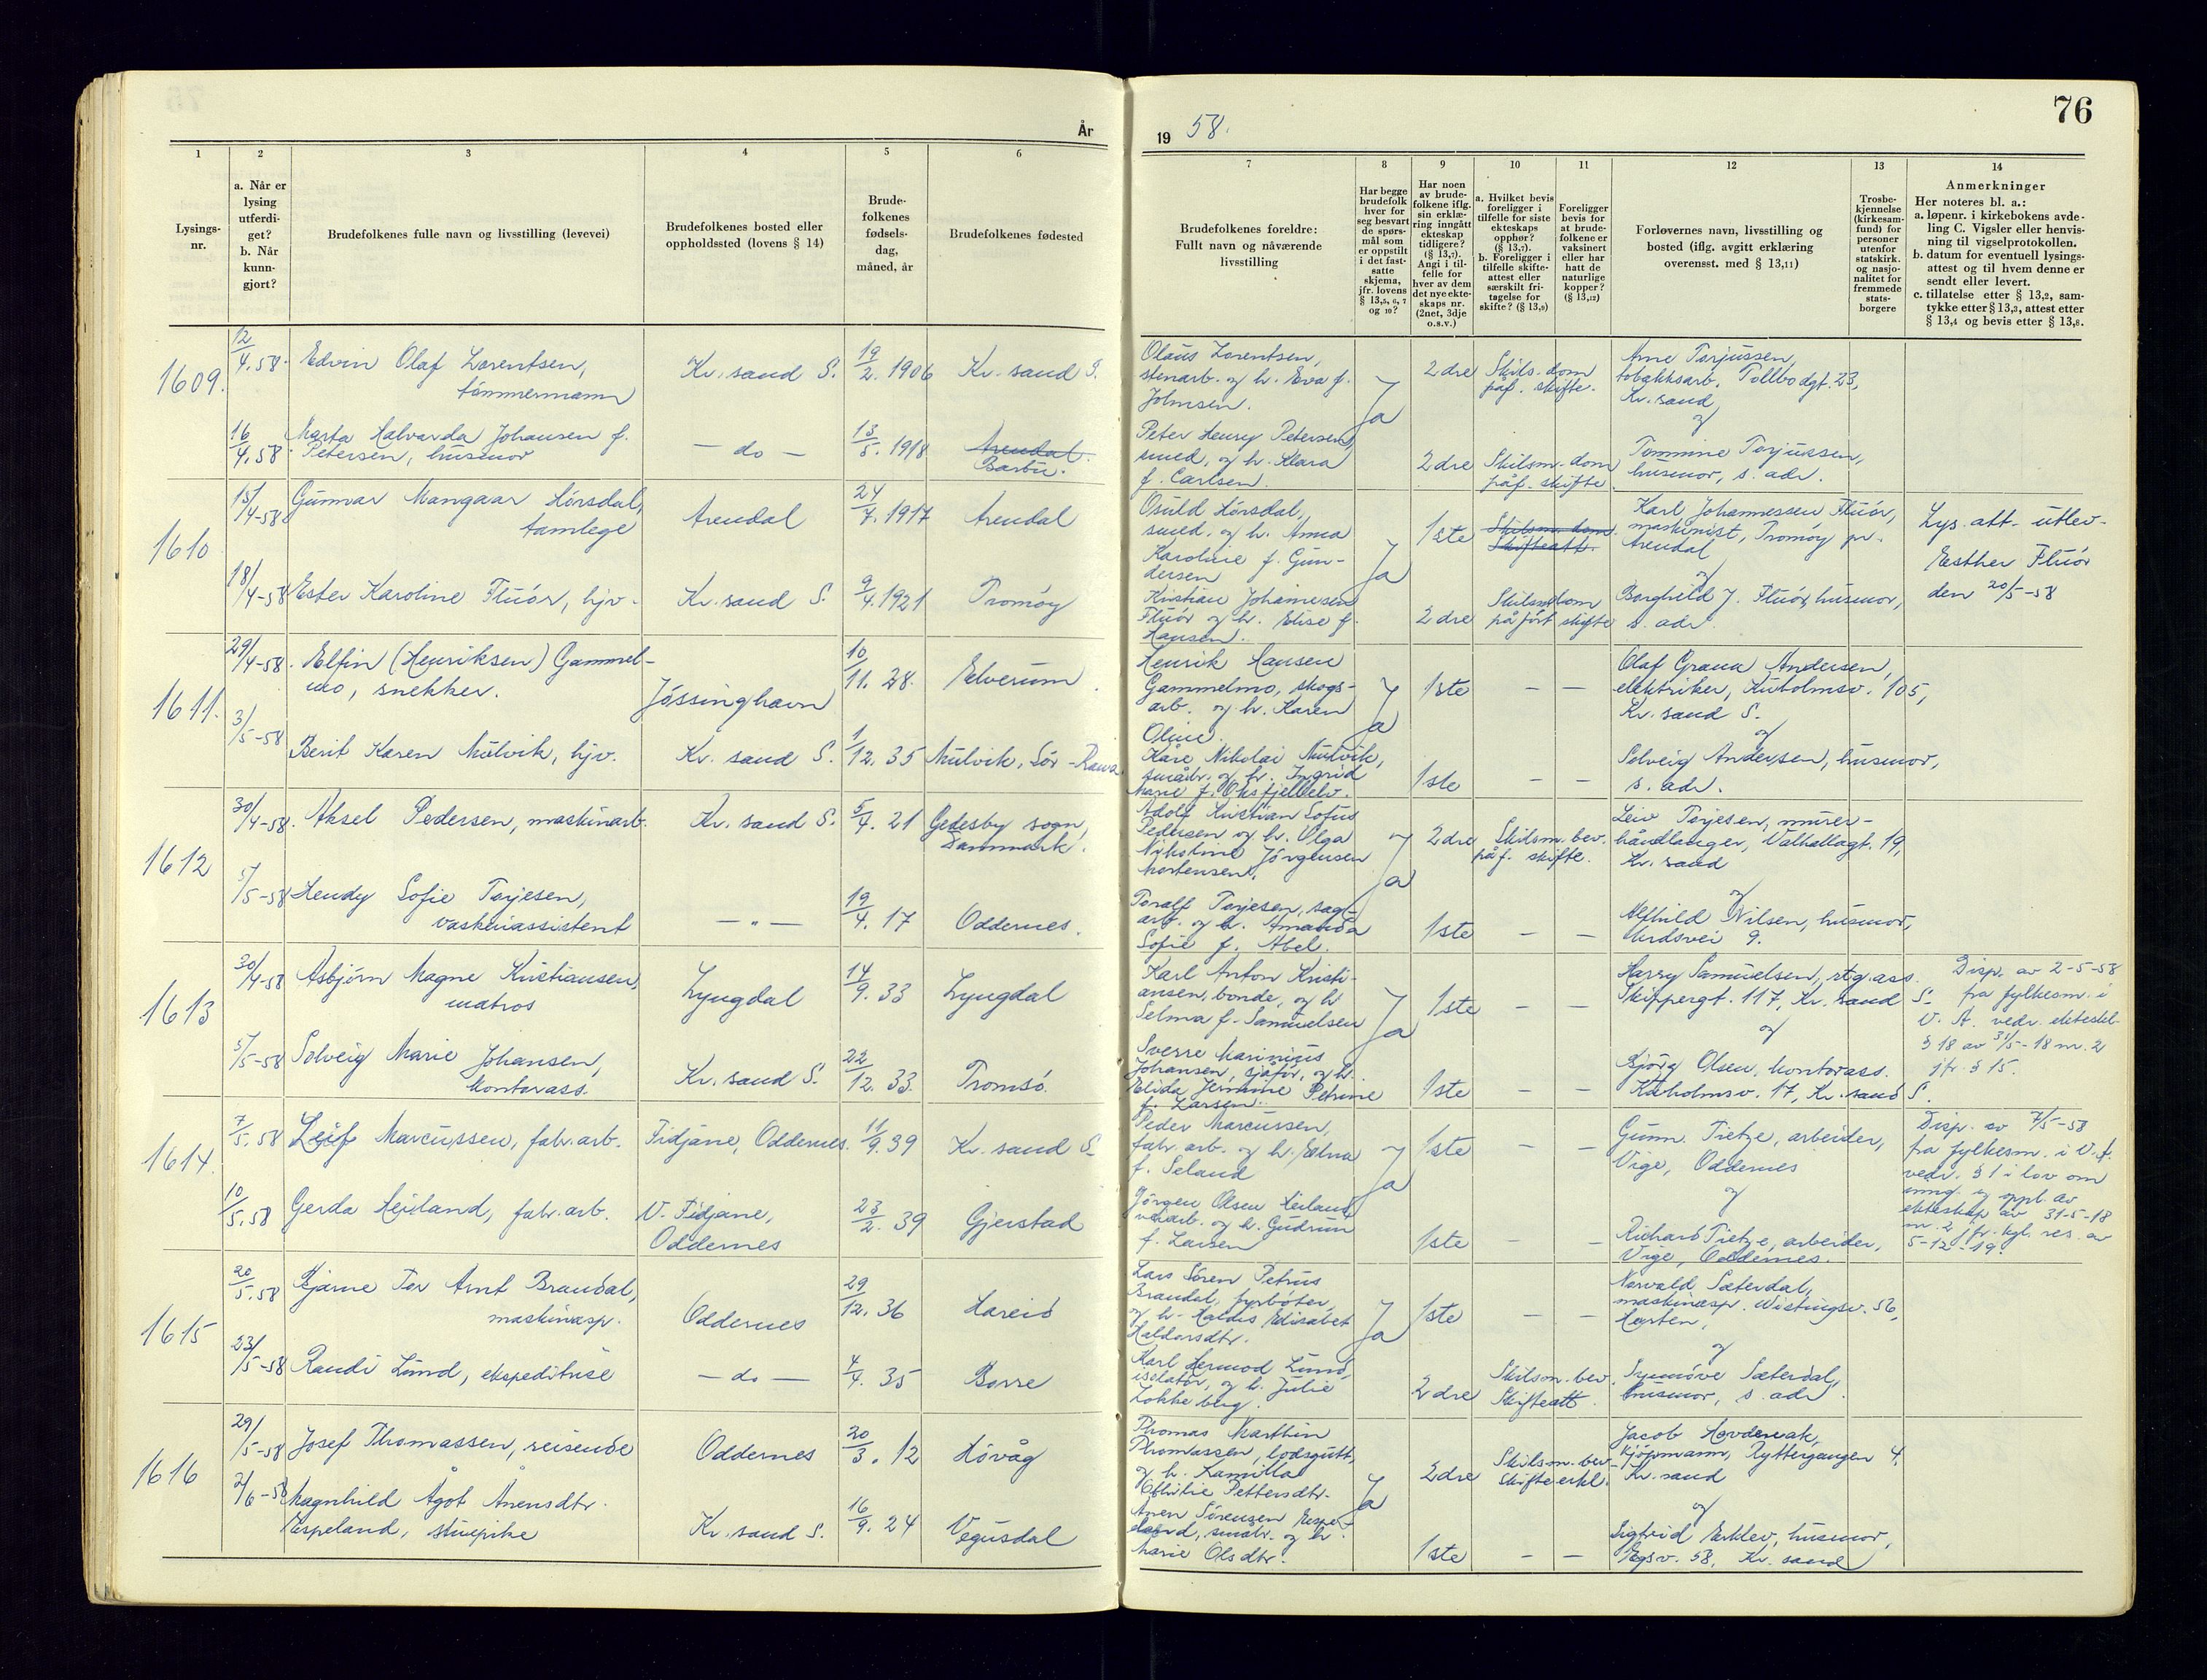 76
År
19 58.
1
2
3
4
5
6
7
8
9
10
11
12
13
14
Lysings-
nr.
a. Når er
lysing
utferdi-
get?
b. Når
kunn-
gjort?
Brudefolkenes fulle navn og livsstilling (levevei)
Brudefolkenes bosted eller
oppholdssted (lovens § 14)
Brude-
folkenes
fødsels-
dag,
måned, år
Brudefolkenes fødested
Brudefolkenes foreldre:
Fullt navn og nåværende
livsstilling
Har begge
brudefolk
hver for
seg besvart
de spørs-
mål som
er oppstilt
i det fast-
satte
skjema,
jfr. lovens
§ 13,5, 6, 7
og 10?
Har noen
av brude-
folkene iflg.
sin erklæ-
ring inngått
ekteskap
tidligere?
(§ 13,7).
Angi i til-
felle for
hver av dem
det nye ekte-
skaps nr.
(2net, 3dje
o.s.v.)
a. Hvilket bevis
foreligger i
tilfelle for siste
ekteskaps
opphør?
(§ 13,7).
b. Foreligger i
tilfelle skifte-
attest eller
særskilt fri-
tagelse for
skifte? (§ 13,9)
Foreligger
bevis for
at brude-
folkene er
vaksinert
eller har
hatt de
naturlige
kopper?
(§ 13,12)
Forløvernes navn, livsstilling og
bosted (iflg. avgitt erklæring
overensst. med § 13,11)
Trosbe-
kjennelse
(kirkesam-
fund) for
personer
utenfor
statskirk.
og nasjo-
nalitet for
fremmede
stats-
borgere
Anmerkninger
Her noteres bl. a.:
a. løpenr. i kirkebokens avde-
ling C. Vigsler eller henvis-
ning til vigselprotokollen.
b. datum for eventuell lysings-
attest og til hvem denne er
sendt eller levert.
c. tillatelse etter § 13,2, sam-
tykke etter § 13,3, attest etter
§ 13,4 og bevis etter § 13,8.
1609.
12/4.58.
Edvin Olaf Lorentsen,
tømmermann
Kr.sand S.
19/2. 1906
Kr.sand S.
Olaus Lorentsen,
stenarb. og h. Eva f.
Johnsen.
Ja
2dre
Skils.dom
påf. skifte.
Arne Torjussen,
tobakksarb. Tollbodgt. 23,
Kr.sand
og
16/4.58
Marta Halvarda Johansen f.
Petersen, husmor
— do —
13/5. 1918
Arendal.
Barbu.
Peter Henry Petersen,
smed, og h. Klara
f. Carlsen.
2dre
Skilsm.dom
påf. skifte
Tommine Torjussen,
husmor, s. adr.
1610
15/4-58
Gunnar Mangaar Hørsdal,
tannlege
Arendal
24/7. 1917
Arendal
Osuld Hørsdal,
smed, og h. Anna
Karoline f. Gun-
dersen
Ja
1ste
Skilsm.dom.
Skifteatt.
Karl Johannessen Fluør,
maskinist, Tromøy pr.
Arendal
og
Lys.att. utlev.
Esther Fluør
den 20/5-58
18/4-58
Ester Karoline Fluør, hjv.
Kr.sand S.
9/4. 1921
Tromøy
Kristian Johannesen
Fluør og h. Elise f.
Hansen.
2dre
Skilsm.dom
påført skifte
Borghild J. Fluør, husmor,
s. adr.
1611.
29/4-58.
Elfin (Henriksen) Gammel-
mo, snekker.
Jøssinghavn
10/11. 28.
Elverum.
Henrik Hansen
Gammelmo, skogs-
arb. og h. Karen
Oline.
Ja
1ste
— —
Olaf Grana Andersen,
elektriker, Kuholmsv. 105,
Kr.sand S.
og
3/5-58
Berit Karen Mulvik, hjv.
Kr. sand S.
1/12. 35
Mulvik, Sør-Rana
Kåre Nikolai Mulvik,
småbr. og h. Ingrid
Marie f. Oksfjellelv.
1ste
— —
Solveig Andersen, husmor,
s. adr.
1612
30/4-58.
Aksel Pedersen, maskinarb.
Kr. sand S.
5/4. 21
Gedesby sogn,
Danmark.
Adolf Kristian Sofus
Pedersen og h. Olga
Nikoline Jørgensen
Mortensen.
Ja
2dre
Skilsm. bev.
påf. skifte.
Leiv Torjesen, murer-
håndlanger, Valhallagt. 19,
Kr.sand
og
5/5-58
Hendy Sofie Torjesen,
vaskeriassistent
— " —
19/4. 17
Oddernes.
Toralf Torjesen, sag-
arb. og h. Amanda
Sofie f. Abel.
1ste
— —
Alfhild Nilsen, husmor,
Urdsvei 9.
1613
30/4-58
Asbjørn Magne Kristiansen,
matros
Lyngdal
14/9. 33
Lyngdal
Karl Anton Kristi-
ansen, bonde, og h.
Selma f. Samuelsen
Ja
1ste
— —
Harry Samuelsen, rtg.ass.
Skippergt. 117, Kr.sand S.
og
Disp. av 2-5-58
fra fylkesm. i
V. A. vedr. ekteskl.
§ 18 av 31/5-18 nr. 2
jfr. § 15.
5/5-58
Solveig Marie Johansen,
kontorass.
Kr.sand S.
22/12. 33.
Tromsø.
Sverre Marinius
Johansen, sjåfør, og h.
Elida Jermine Petrine
f. Larsen.
1ste
— —
Bjørg Olsen, kontorass.
Kuholmsv. 17, Kr.sand S.
1614.
7/5.58
Leif Marcussen, fabr.arb.
Fidjane, Oddernes.
11/9. 39
Kr.sand S.
Peder Marcussen,
fabr. arb. og h. Elna
f. Seland
Ja
1ste
— —
Gunn. Tietze, arbeider,
Vige, Oddernes
og
Disp. av 7/5-58
fra fylkesm. i V.A.
vedr. § 1 i lov om
inng. og oppl. av
ekteskap av 31-5-18
nr. 2 jfr. kgl. res. av
5-12-19.
10/5.58
Gerda Heiland, fabr.arb.
V. Fidjane,
Oddernes
23/2. 39
Gjerstad
Jørgen Olsen Heiland
og h. Gudrun
f. Larsen
1ste
— —
Richard Tietze, arbeider,
Vige, Oddernes.
1615
20/5.58
Bjarne Tor Arnt Brandal,
maskinasp.
Oddernes
29/12. 36
Hareid
Lars Søren Petrus
Brandal, fyrbøter,
og h. Haldis Elisabet
Haldorsdtr.
Ja
1ste
— —
Norvald Sæterdal,
maskinasp. Wistingsv. 56,
Horten,
og
23/5-58
Randi Lund, ekspeditrise
— do —
4/4. 35
Borre
Karl Hermod Lund,
isolatør, og h. Julie
Løkkeberg.
2dre
Skilsm.bev.
Skifteatt.
Synnøve Sæterdal,
husmor, s. adr.
1616
29/5-58
Josef Thomassen, reisende
Oddernes
20/3. 12
Høvåg
Thomas Marthin
Thomassen, losgutt,
og h. Kamilla
Othilie Pettersdtr.
Ja
2dre
Skilsm.bev.
Skifteerkl.
Jacob Hovdenak,
kjøpmann, Ryttergangen 4,
Kr.sand
og
2/6-58
Magnhild Ågot Ånensdtr.
Espeland, stuepike
Kr.sand S.
16/9. 24
Vegusdal
Anen Sørensen Espe-
land, småbr. og h.
Marie Olsdtr.
1ste
— —
Sigfrid Erklev, husmor,
Egsv. 58, Kr.sand